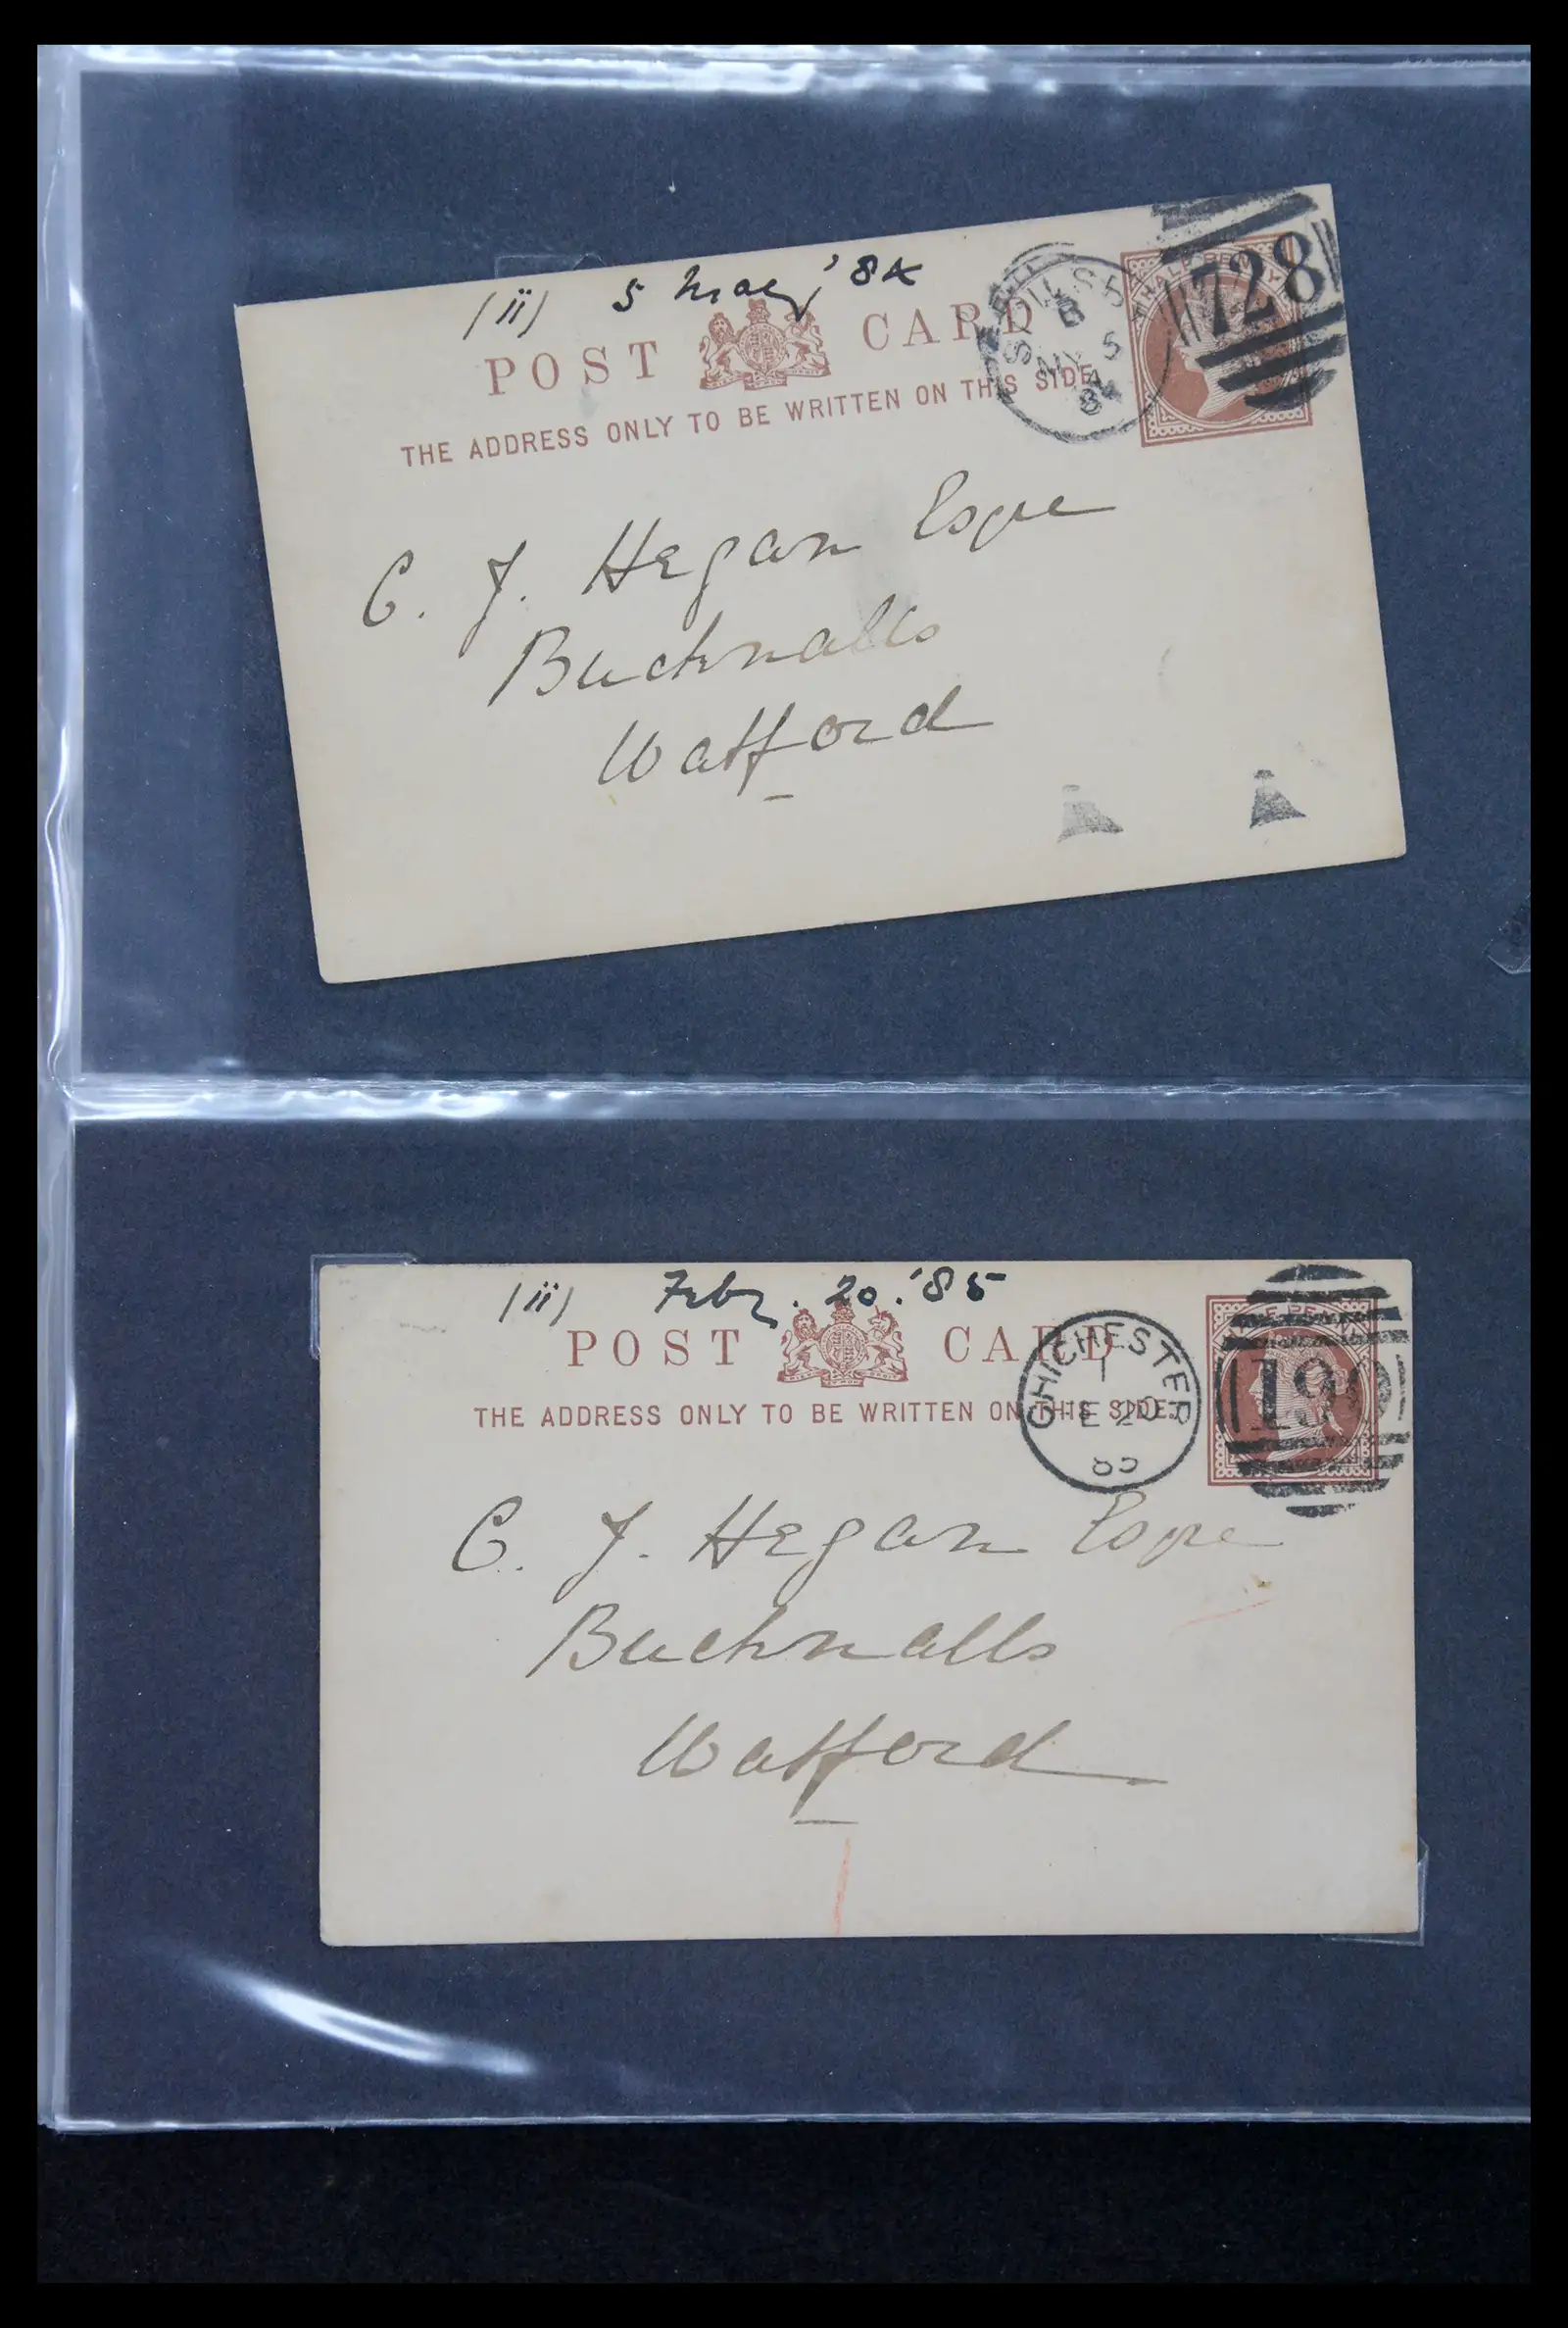 (ii) 5 May '84
POST CARD
THE ADDRESS ONLY TO BE WRITTEN ON THIS SIDE.
B
MY 5
84
HALF PENNY
728
C. J. Hegan Esqre
Bucknalls
Watford
(ii) Febr. 20. '85
POST CARD
THE ADDRESS ONLY TO BE WRITTEN ON THIS SIDE.
CHICHESTER
1
FE 20
85
HALF PENNY
190
C. J. Hegan Esqre
Bucknalls
Watford